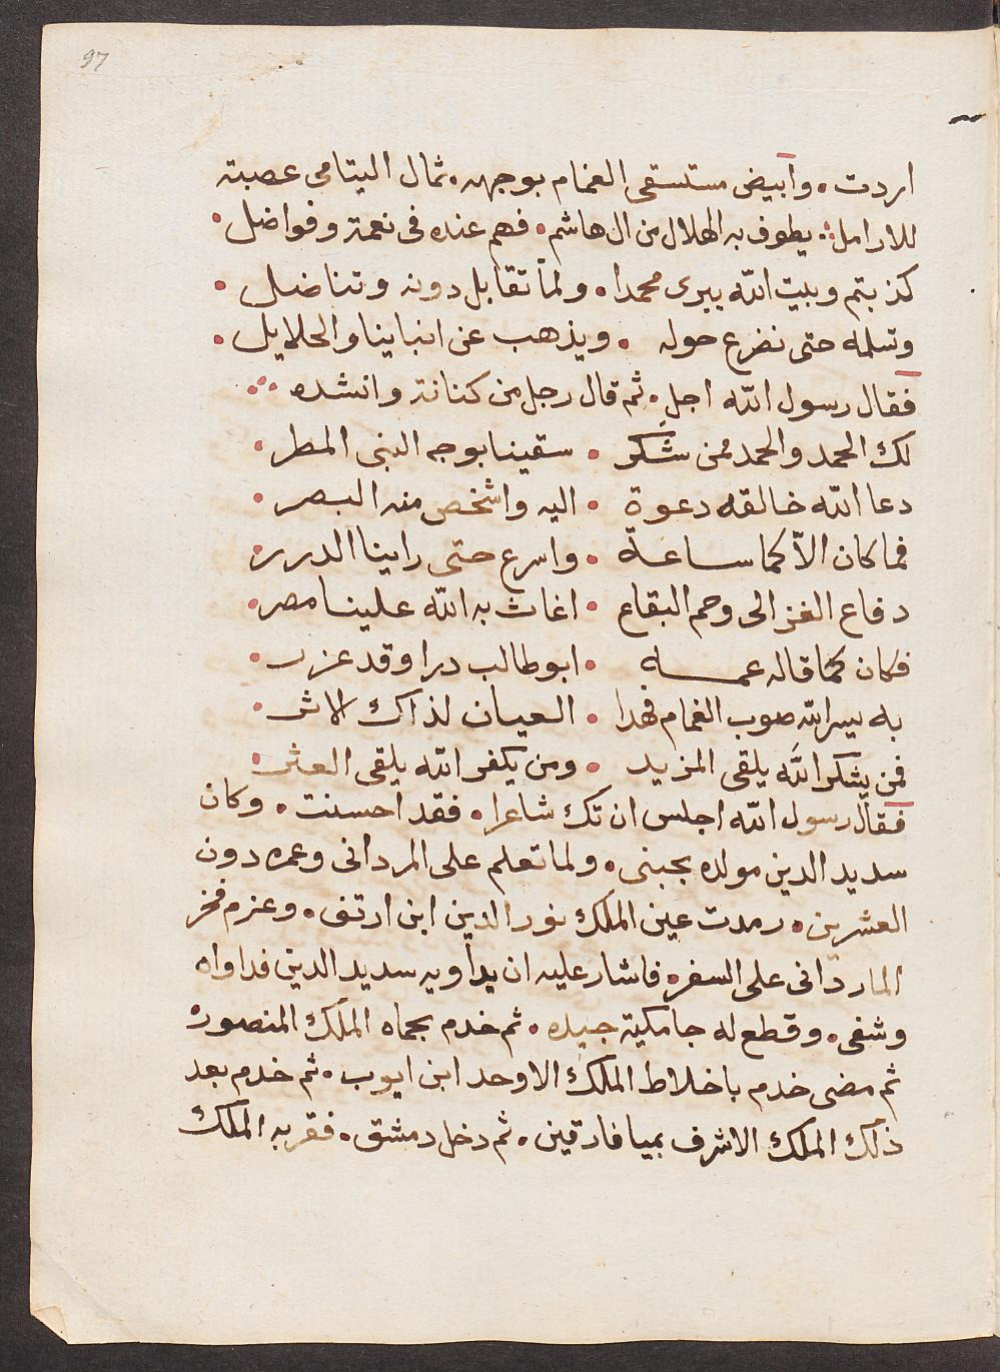 97
اردت . وابيض مستسقى الغمام بوجهه . ثمال اليتامى عصبته
للارامل . يطوف به الهلال من ال هاشم . فهم عنده فى نعمة وفواضل .
كذبتم وبيت الله يبرى محمدا . ولما تقابل دونه وتناضل .
وتسلمه حتى نضرع حوله . ويذهب عن انباينا والحلايل .
فقال رسول الله اجل . ثم قال رجل من كنانة وانشده
لك الحمد والحمد ممن شكر . سقينا بوجه النبى المطر .
دعا الله خالقه دعوة . اليه واشخص منه البصر .
فما كان الا كما ساعة . واسرع حتى راينا الدرر .
دفاع الغزالى وحم البقاع . اغاث به الله علينا مصر .
فكان كما قاله عمه . ابو طالب درا وقد عزر .
به يسر الله صوب الغمام فهدا . العيان لذاك الاثر .
فمن يشكر الله يلقى المزيد . ومن يكفر الله يلقى العثر .
فقال رسول الله اجلس ان تك شاعرا . فقد احسنت . وكان
سديد الدين مولده بجبنى . ولما تعلم على المردانى وعمره دون
العشرين . رمدت عين الملك نور الدين ابن ارتق . وعزم فخر
الماردانى على السفر . فاشار عليه ان يداويه سديد الدين فداواه
وشفى . وقطع له جامكية جيده . ثم خدم بحماه الملك المنصور .
ثم مضى خدم باخلاط الملك الاوحد ابن ايوب . ثم خدم بعد
ذلك الملك الاشرف بميافارقين . ثم دخل دمشق . فقربه الملك